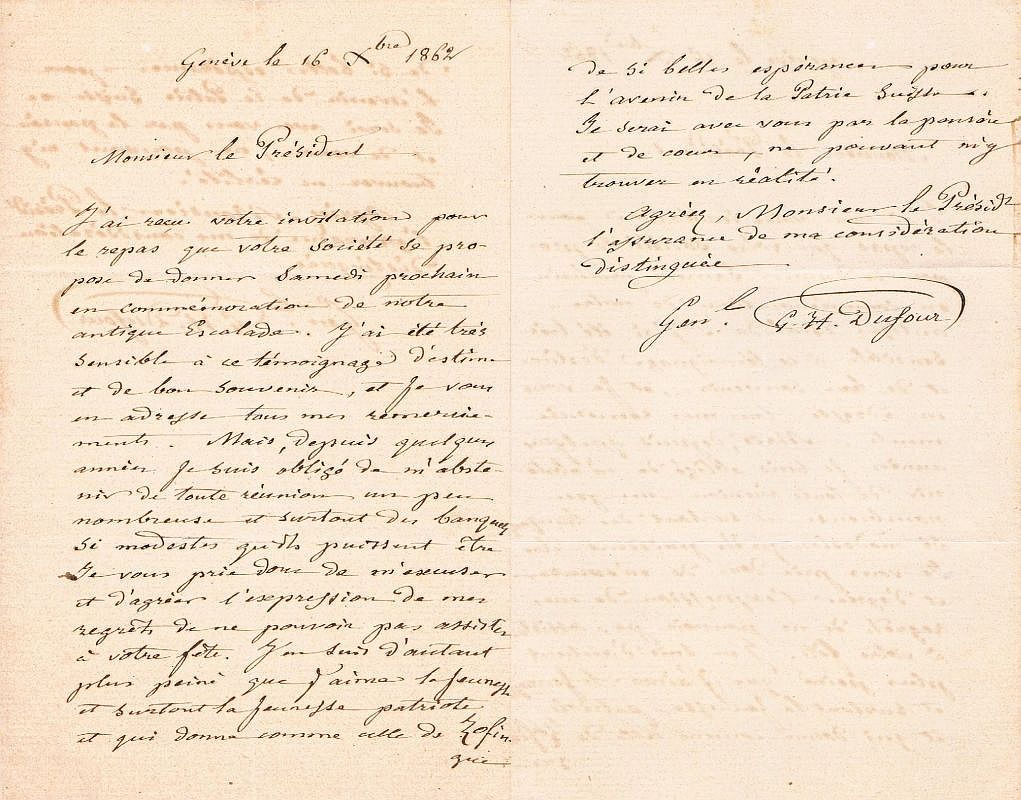 Genève le 16 Xbre 1862
Monsieur le Président
J'ai reçu votre invitation pour
le repas que votre Société se pro-
pose de donner Samedi prochain
en commémoration de notre
antique Escalade. J'ai été très
sensible à ce témoignage d'estime
et de bon souvenir, et je vous
en adresse tous mes remercie-
ments. Mais, depuis quelques
années je suis obligé de m'abste-
nir de toute réunion un peu
nombreuse et surtout des banquets
si modestes qu'ils puissent être
Je vous prie donc de m'excuser
et d'agréer l'expression de mes
regrets de ne pouvoir pas assister
à votre fête. J'en suis d'autant
plus peiné que j'aime la jeunesse
et surtout la jeunesse patriote
et qui donne comme celle de Zofin-
gue
de si belles espérances pour
l'avenir de la Patrie Suisse.
Je serai avec vous par la pensée
et de coeur, ne pouvant m'y
trouver en réalité.
Agréez, Monsieur le Présidt
l'assurance de ma considération
distinguée
Genl. G. H. Dufour